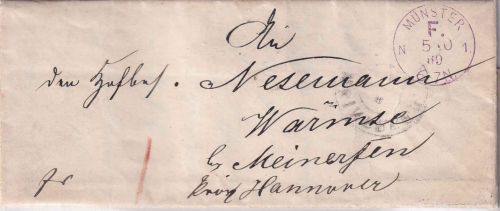 An
den Hofbes. Nesemann
Warmse
b/ Meinersen
Prov Hannover
fr
MÜNSTER
F.
N 5 10 1
80
7N